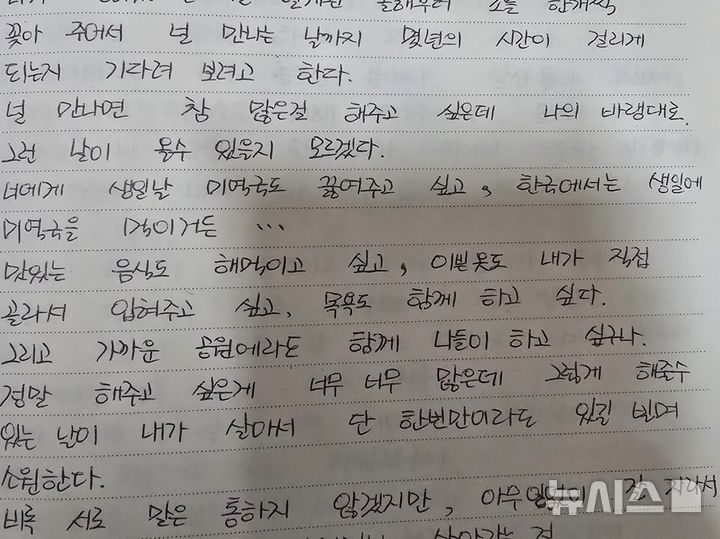 꽂아 주어서 널 만나는 날까지 몇년의 시간이 걸리게
되는지 기다려 보려고 한다.
널 만나면 참 많은걸 해주고 싶은데 나의 바램대로
그런 날이 올수 있을지 모르겠다.
너에게 생일날 미역국도 끓여주고 싶고, 한국에서는 생일에
미역국을 먹이거든 ...
맛있는 음식도 해먹이고 싶고, 이쁜옷도 내가 직접
골라서 입혀주고 싶고, 목욕도 함께 하고 싶다.
그리고 가까운 공원에라도 함께 나들이 하고 싶구나.
정말 해주고 싶은게 너무 너무 많은데 그렇게 해줄수
있는 날이 내가 살아서 단 한번만이라도 있길 빌며
소원한다.
비록 서로 말은 통하지 않겠지만, 아무 잘 자라서
뉴시스